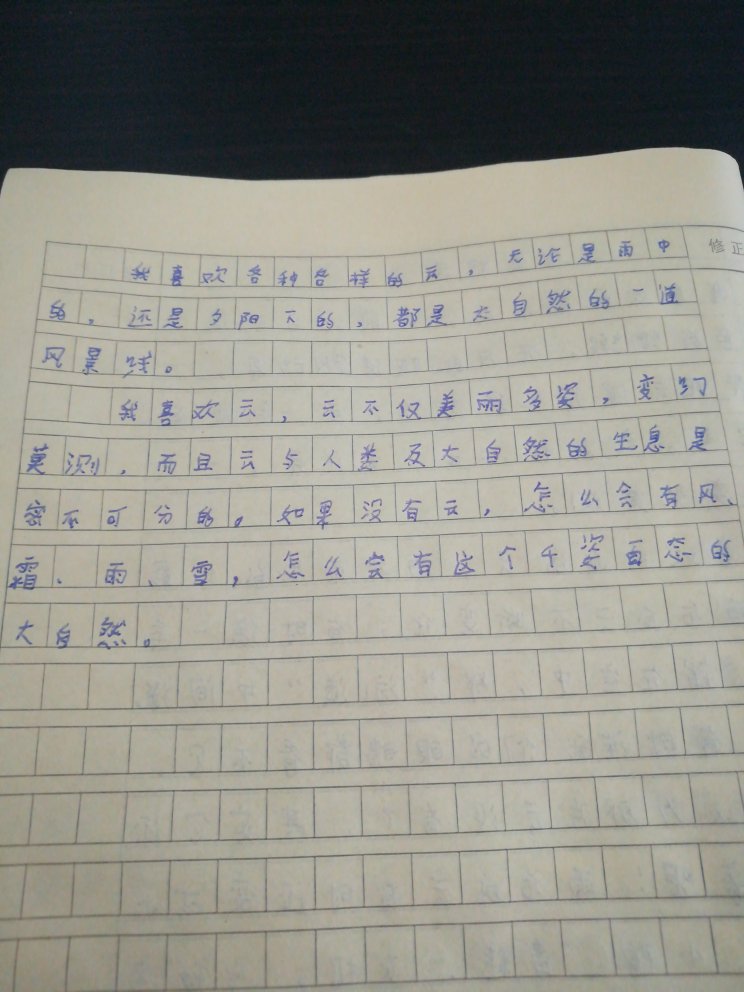 我喜欢各种各样的云，无论是雨中
修正
的，还是夕阳下的，都是大自然的一道
风景线。
我喜欢云，云不仅美丽多姿，变幻
莫测，而且云与人类及大自然的生息是
密不可分的。如果没有云，怎么会有风、
霜、雨、雪，怎么会有这个千姿百态的
大自然。